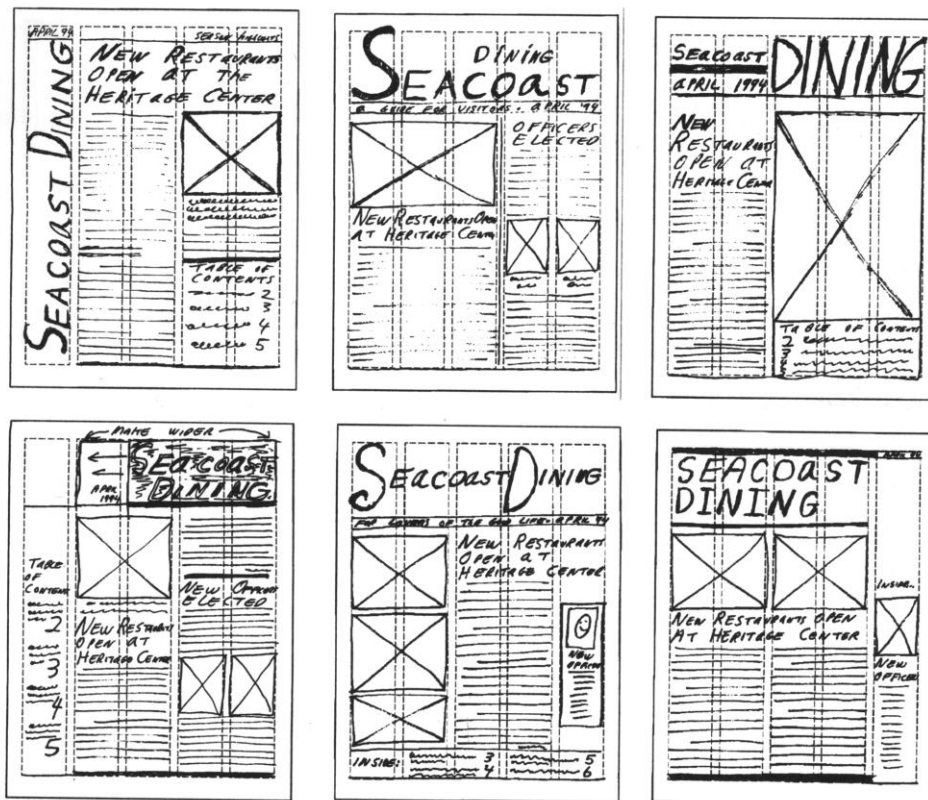 APRIL 94
SEASON
SEACOAST DINING
NEW RESTAURANTS
OPEN AT THE
HERITAGE CENTER
TABLE OF
CONTENTS
2
3
4
5
DINING
SEACOAST
A GUIDE FOR VISITORS . APRIL '94
OFFICERS
ELECTED
NEW RESTAURANTS OPEN
AT HERITAGE CENTER
SEACOAST
APRIL 1994
DINING
NEW
RESTAURANTS
OPEN AT
HERITAGE CENTER
TABLE OF CONTENTS
2
3
MAKE WIDER
SEACOAST
DINING
APRIL
1994
TABLE
OF
CONTENTS
2
3
4
5
NEW RESTAURANTS
OPEN AT
HERITAGE CENTER
NEW OFFICERS
ELECTED
SEACOAST DINING
FOR LOVERS OF THE GOOD LIFE • APRIL 94
NEW RESTAURANTS
OPEN AT
HERITAGE CENTER
NEW
OFFICERS
INSIDE:
3
4
5
6
SEACOAST
DINING
APRIL 94
NEW RESTAURANTS OPEN
AT HERITAGE CENTER
INSIDE..
NEW
OFFICERS